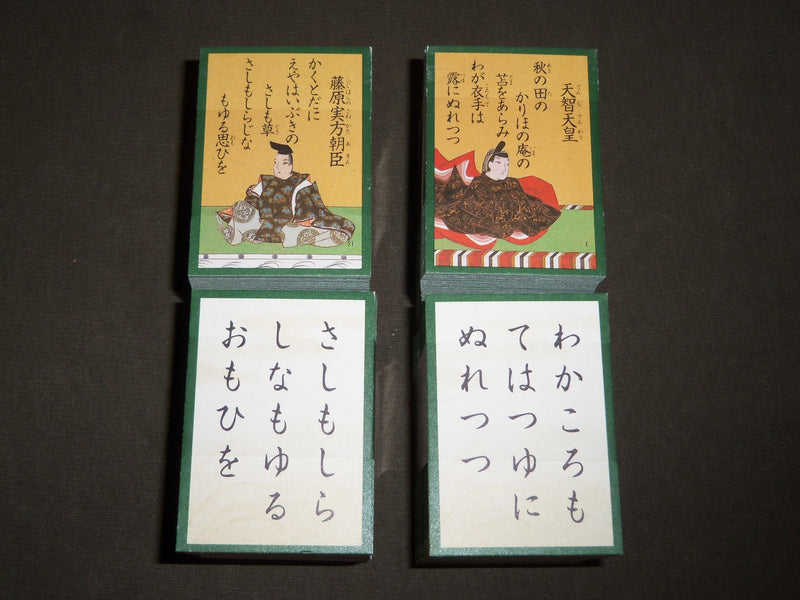 天智天皇
秋の田の
かりほの庵の
苫をあらみ
わが衣手は
露にぬれつつ
1
藤原実方朝臣
かくとだに
えやはいぶきの
さしも草
さしもしらじな
もゆる思ひを
51
わかころも
てはつゆに
ぬれつつ
さしもしら
しなもゆる
おもひを